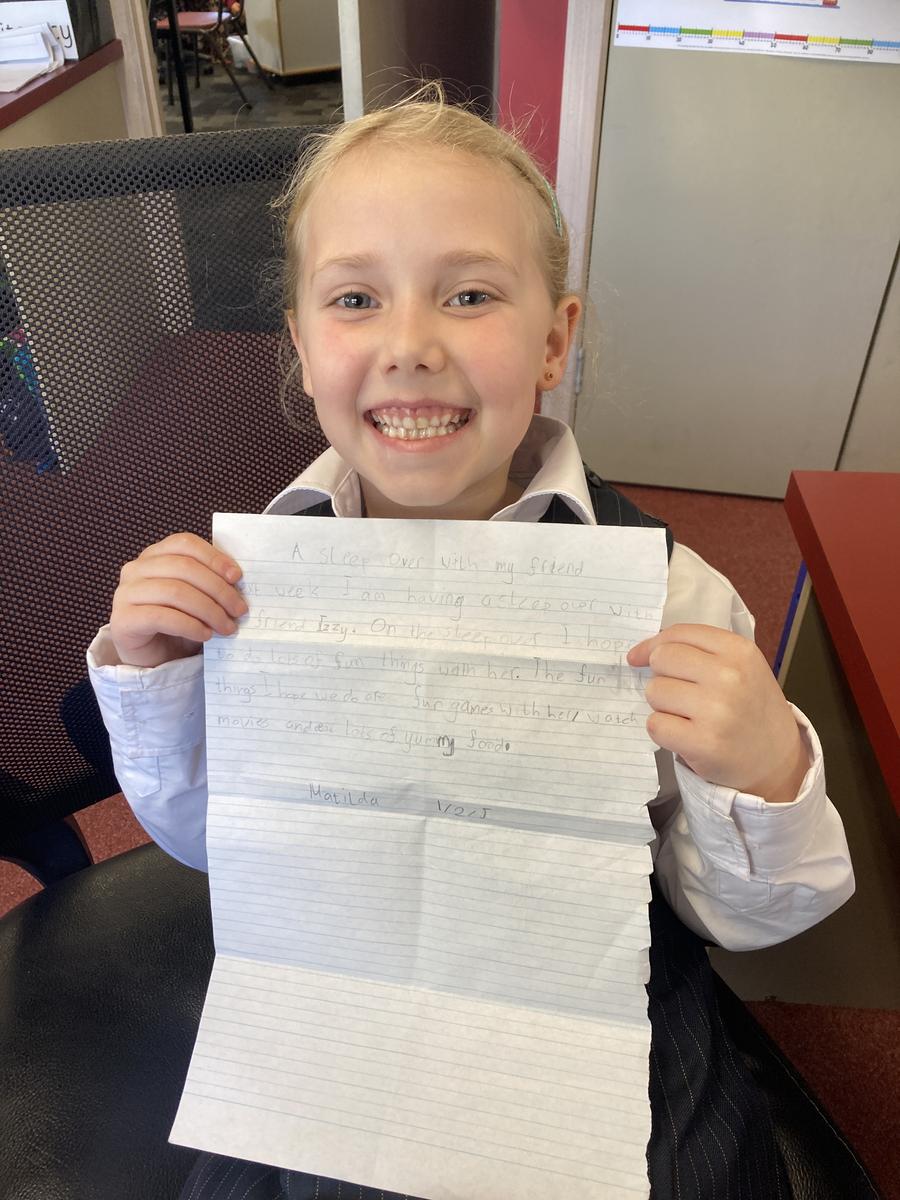 A sleep over with my friend
week I am having a sleep over with
friend Izzy. On the sleep over I hope
to do lots of fun things with her. The fun
things I hope we do are fun games with her, watch
movies and lots of yummy food.
Matilda 1/2/J